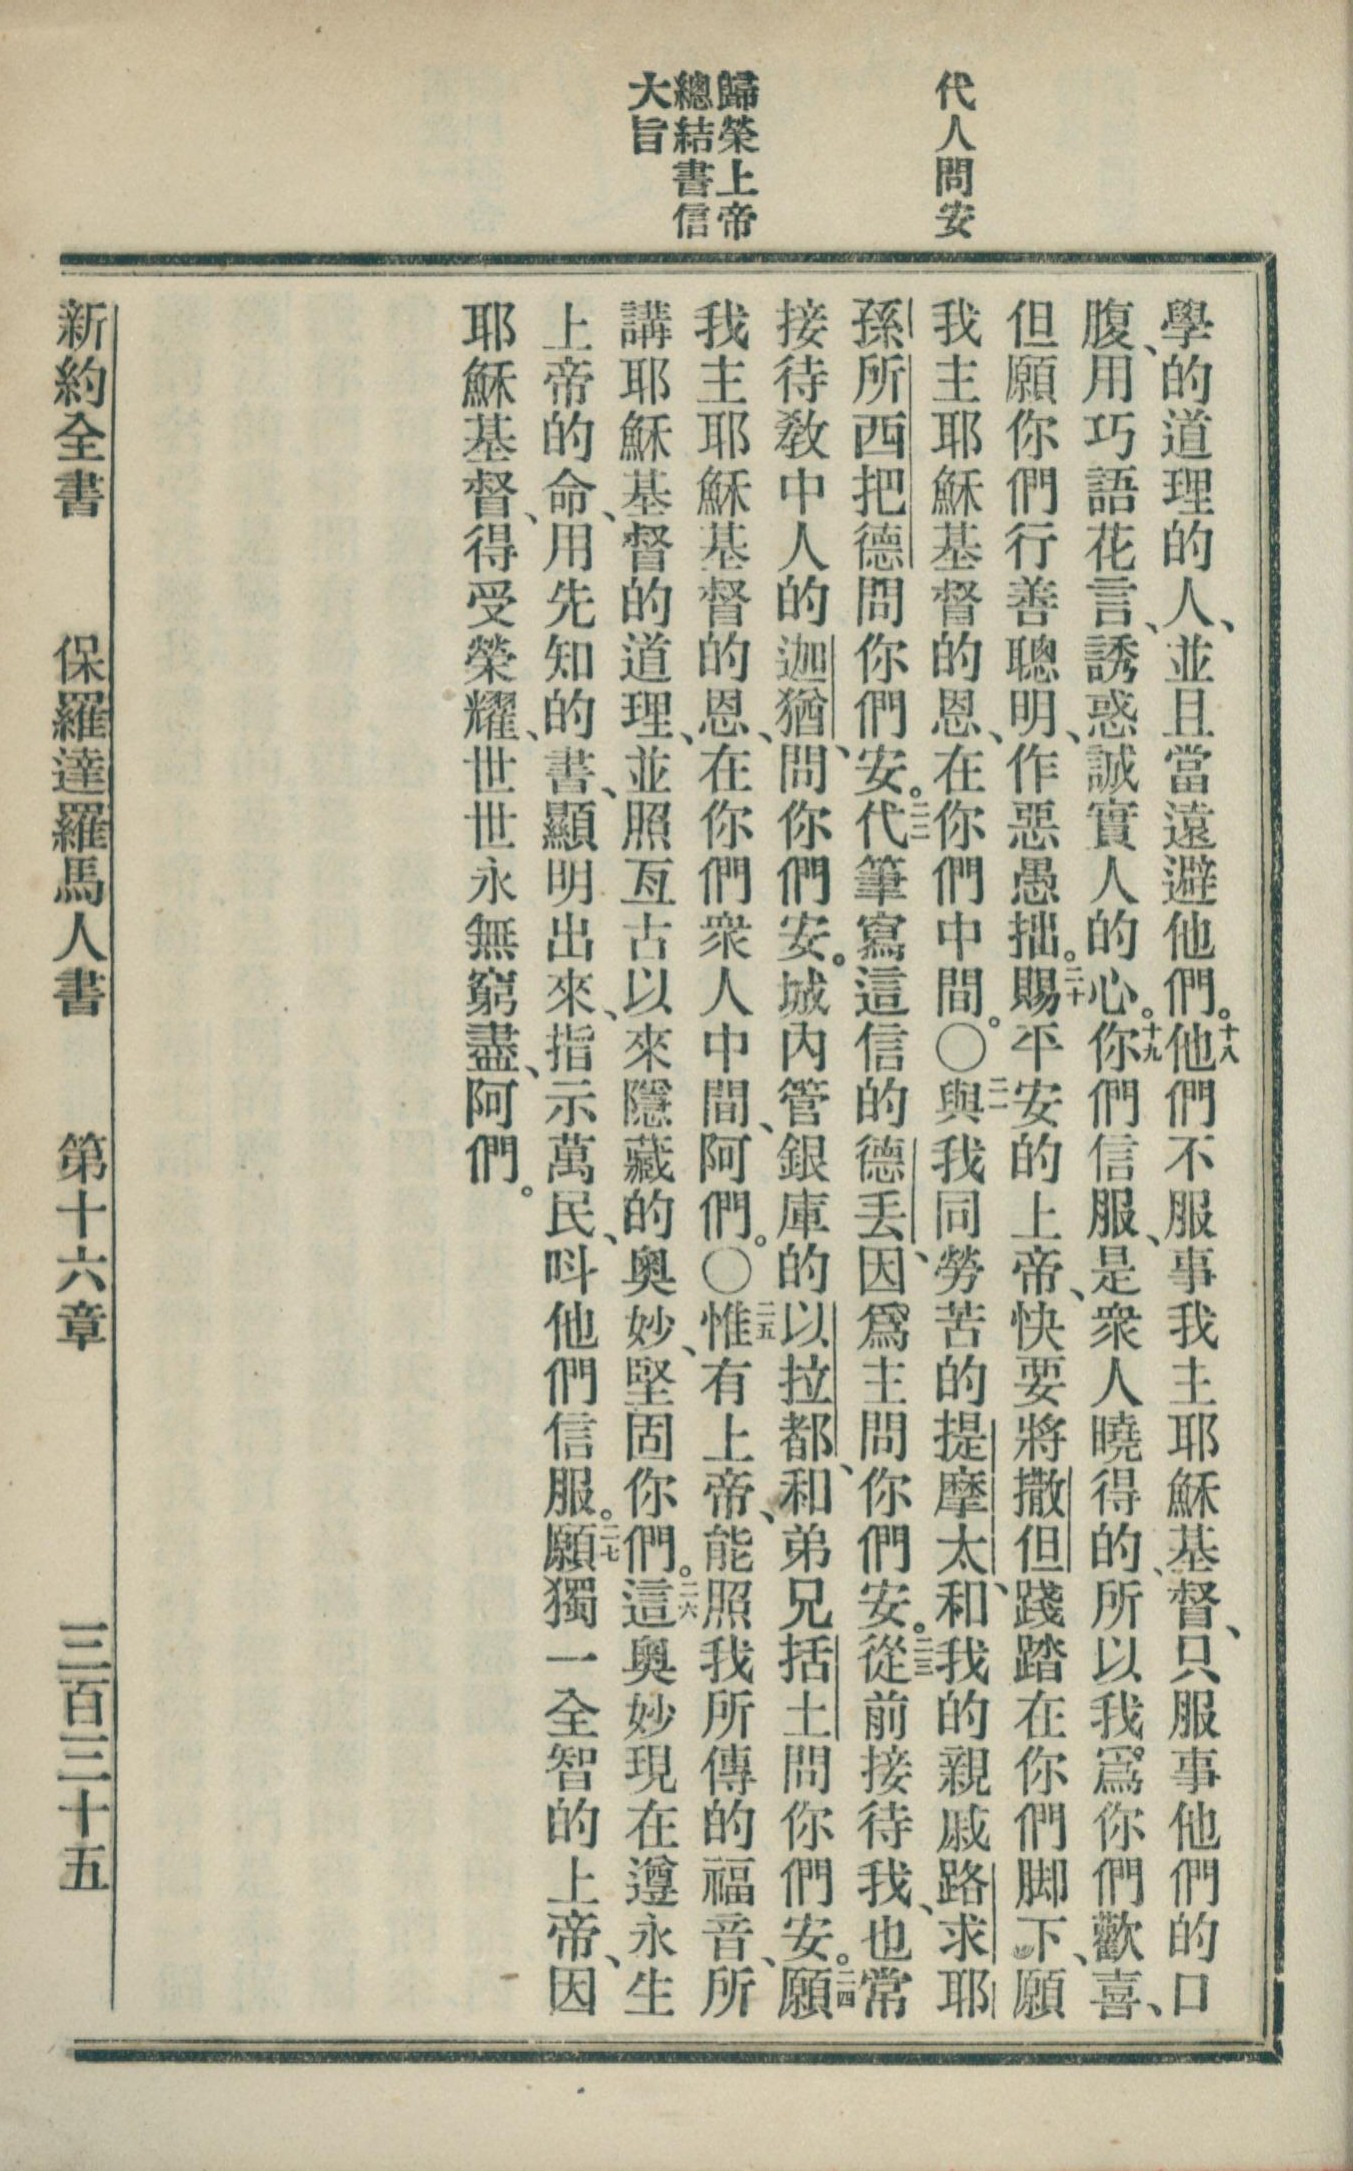 代人問安
歸榮上帝
總結書信
大旨
學的道理的人、並且當遠避他們。十八他們不服事我主耶穌基督、只服事他們的口
腹、用巧語花言、誘惑誠實人的心。十九你們信服、是衆人曉得的、所以我爲你們歡喜、
但願你們行善聰明、作惡愚拙。二十賜平安的上帝、快要將撒但踐踏在你們脚下、願
我主耶穌基督的恩、在你們中間。〇二一與我同勞苦的提摩太、和我的親戚路求耶
孫所西把德問你們安。二二代筆寫這信的德丢、因爲主問你們安。二三從前接待我、也常
接待敎中人的迦猶、問你們安。城內管銀庫的以拉都、和弟兄括土問你們安。二四願
我主耶穌基督的恩、在你們衆人中間、阿們。〇二五惟有上帝、能照我所傳的福音、所
講耶穌基督的道理、並照亙古以來隱藏的奧妙、堅固你們。二六這奧妙現在遵永生
上帝的命、用先知的書、顯明出來、指示萬民、呌他們信服。二七願獨一全智的上帝、因
耶穌基督、得受榮耀、世世永無窮盡、阿們。
新約全書 保羅達羅馬人書 第十六章 三百三十五